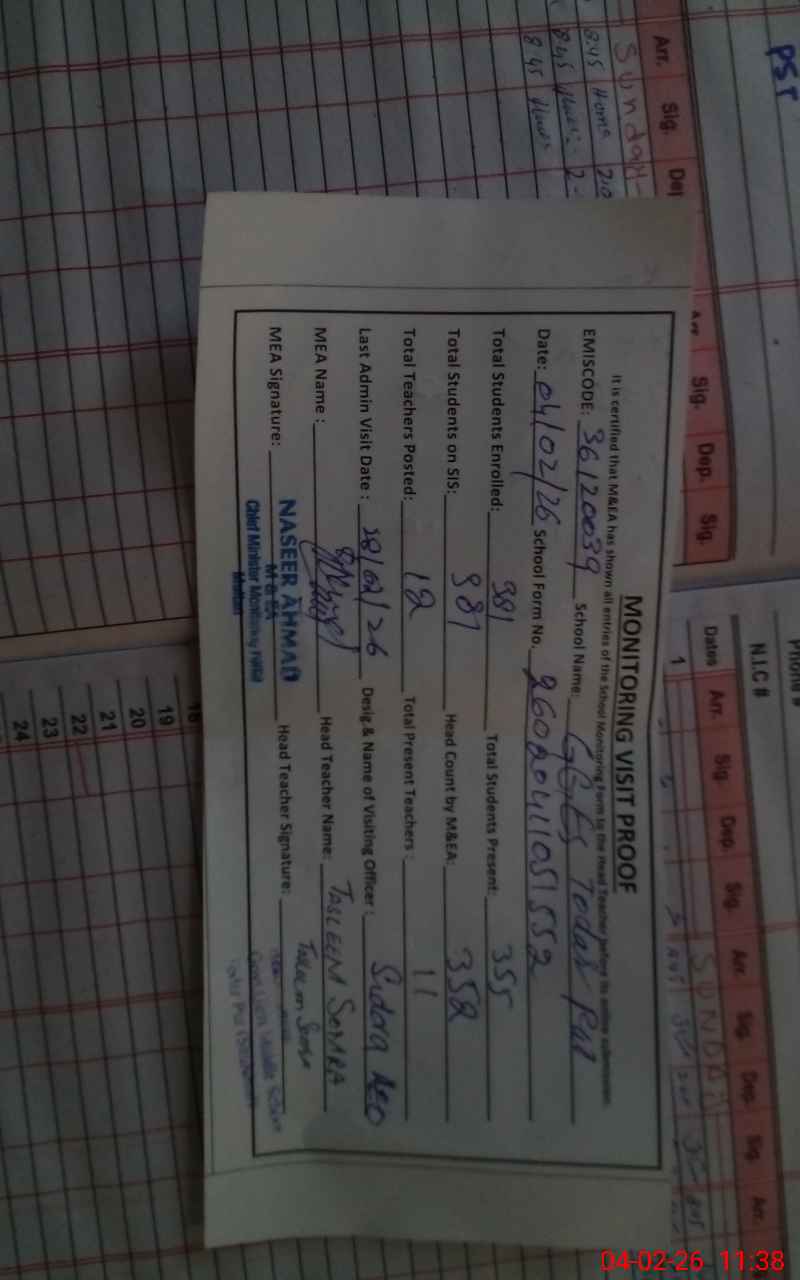 MONITORING VISIT PROOF
It is certified that M&EA has shown all entries of the School Monitoring Form to the Head Teacher before its online submission.
EMISCODE: 36120039 School Name: GGES Todar Pur
Date: 04/02/26 School Form No. 26020411051552
Total Students Enrolled: 381 Total Students Present: 355
Total Students on SIS: 381 Head Count by M&EA: 352
Total Teachers Posted: 12 Total Present Teachers: 11
Last Admin Visit Date: /02/26 Desig.& Name of Visiting Officer: Sidra AEO
MEA Name: Head Teacher Name: TASLEEM SEMRA
MEA Signature: Head Teacher Signature:
NASEER AHMAD
M & EA
Chief Minister Monitoring Force
Multan
PST
Arr. Sig. Dep
Sunday
8:45 Home 2:0
8:45
8:45
Arr Sig. Dep. Sig.
Phone #
N.I.C #
Dates Arr. Sig. Dep. Sig. Arr. Sig. Dep. Sig. Arr.
1
SUNDAY
18
19
20
21
22
23
24
04-02-26 11:38